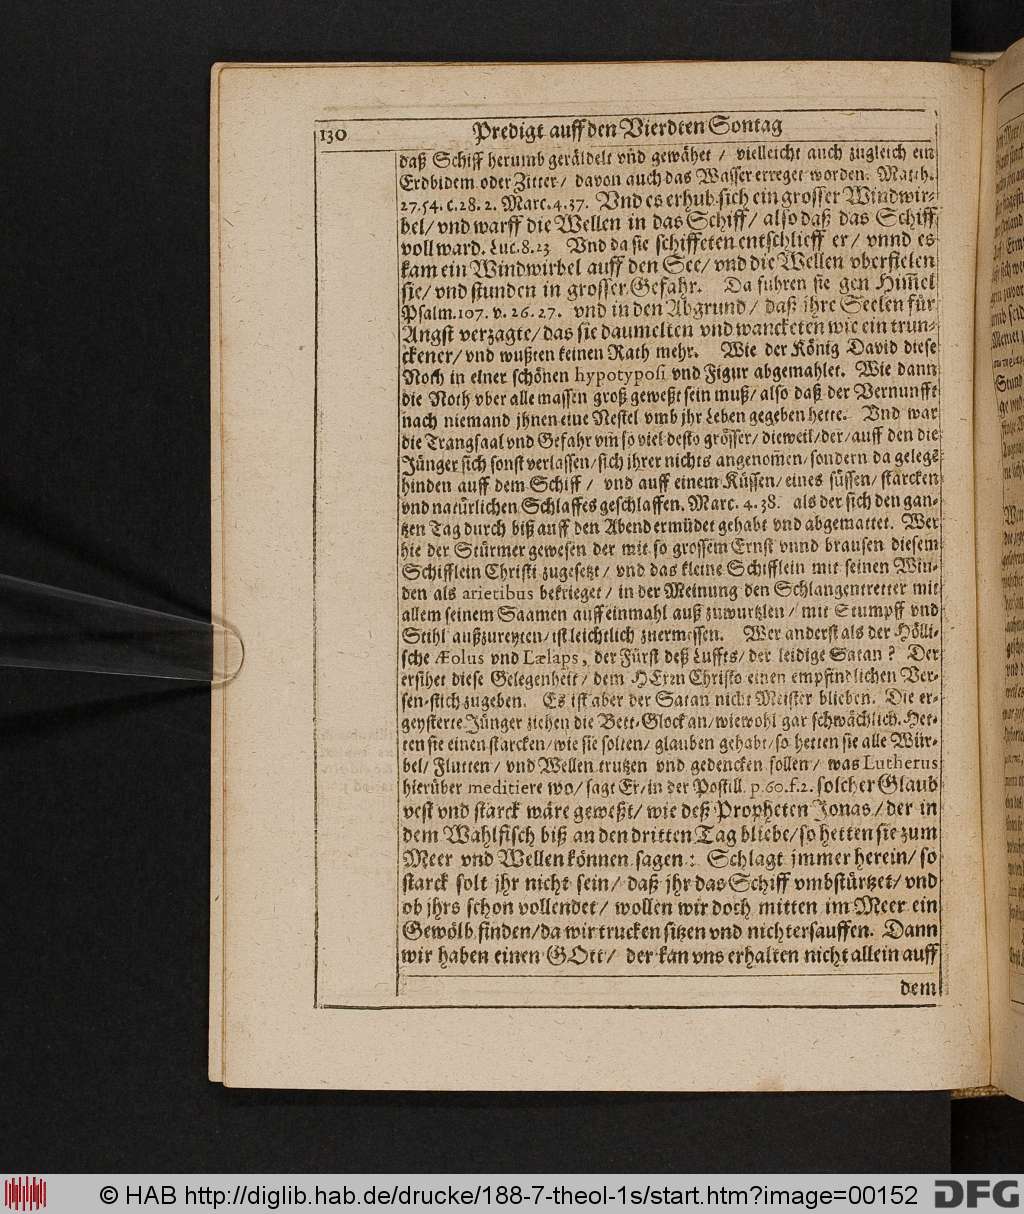 130
Predigt auff den Vierdten Sontag
daß Schiff herumb gerädelt vñd gewähet / vielleicht auch zugleich ein
Erdbidem oder Zitter / davon auch das Wasser erreget worden. Matth.
27.54. c.28.2. Marc.4.37. Vnd es erhub sich ein grosser Windwir-
bel / vnd warff die Wellen in das Schiff / also daß das Schiff
voll ward. Luc.8.23 Vnd da sie schiffeten entschlieff er / vnnd es
kam ein Windwirbel auff den See / vnd die Wellen vberfielen
sie / vnd stunden in grosser Gefahr. Da fuhren sie gen Him̃el
Psalm.107. v. 26.27. vnd in den Abgrund / daß ihre Seelen für
Angst verzagte / das sie daumelten vnd wancketen wie ein trun-
ckener / vnd wußten keinen Rath mehr. Wie der König David diese
Noth in einer schönen hypotyposi vnd Figur abgemahlet. Wie dann
die Noth vber alle massen groß geweßt sein muß / also daß der Vernunfft
nach niemand jhnen eine Nestel vmb jhr Leben gegeben hette. Vnd war
die Trangsaal vnd Gefahr vm̃ so viel desto grösser / dieweil / der / auff den die
Jünger sich sonst verlassen / sich ihrer nichts angenom̃en / sondern da gelegẽ
hinden auff dem Schiff / vnd auff einem Küssen / eines süssen / starcken
vnd natürlichen Schlaffes geschlaffen. Marc. 4. 38. als der sich den gan-
tzen Tag durch biß auff den Abend ermüdet gehabt vnd abgemattet. Wer
hie der Stürmer gewesen der mit so grossem Ernst vnnd brausen diesem
Schifflein Christi zugesetzt / vnd das kleine Schifflein mit seinen Win-
den als arietibus bekrieget / in der Meinung den Schlangentretter mit
allem seinem Saamen auff einmahl auß zuwurtzlen / mit Stumpff vnd
Stihl außzureuten / ist leichtlich zuermessen. Wer anderst als der Hölli-
sche Æolus vnd Lælaps, der Fürst deß Luffts / der leidige Satan? Der
ersihet diese Gelegenheit / dem HErzn Christo einen empfindlichen Ver-
sen-stich zugeben. Es ist aber der Satan nicht Meister blieben. Die er-
geysterte Jünger ziehen die Bett-Glock an / wiewohl gar schwächlich. Het-
ten sie einen starcken / wie sie solten / glauben gehabt / so hetten sie alle Wür-
bel / Flutten / vnd Wellen trutzen vnd gedencken sollen / was Lutherus
hierüber meditiere wo / sagt Er / in der Postill. p.60.f.2. solcher Glaub
vest vnd starck wäre geweßt / wie deß Propheten Jonas / der in
dem Wahlfisch biß an den dritten Tag bliebe / so hetten sie zum
Meer vnd Wellen können sagen: Schlagt jmmer herein / so
starck solt jhr nicht sein / daß jhr das Schiff vmbstürtzet / vnd
ob jhrs schon vollendet / wollen wir doch mitten im Meer ein
Gewölb finden / da wir trucken sitzen vnd nicht ersauffen. Dann
wir haben einen GOtt / der kan vns erhalten nicht allein auff
dem
© HAB http://diglib.hab.de/drucke/188-7-theol-1s/start.htm?image=00152
DFG